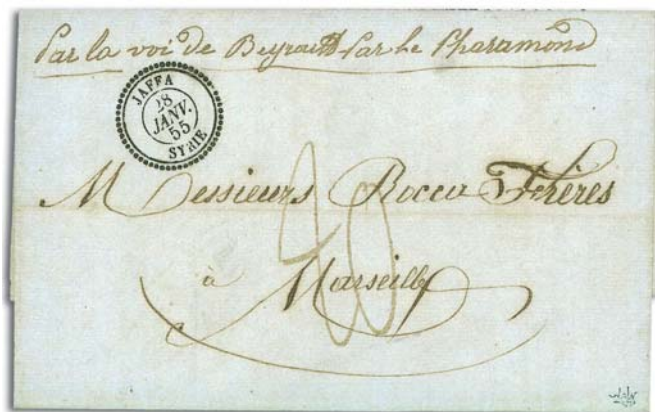 Par la voi de Beyrout Par le Pharamond
JAFFA
28
JANV.
55
SYRIE
Messieurs Rocca Frères
à Marseille